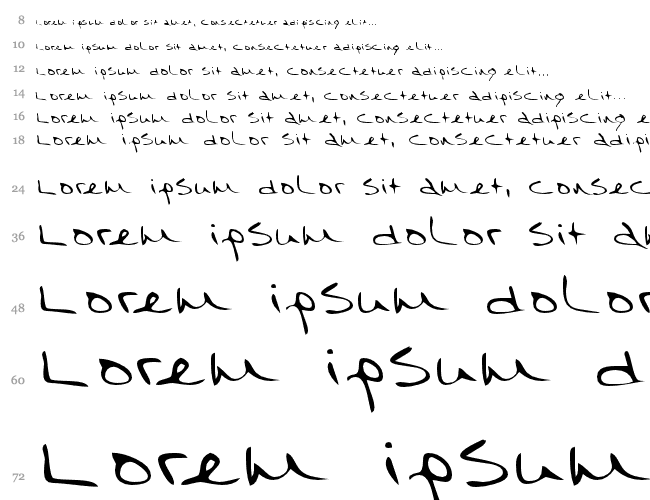 8 Lorem ipsum dolor sit amet, consectetuer adipiscing elit...
10 Lorem ipsum dolor sit amet, consectetuer adipiscing elit...
12 Lorem ipsum dolor sit amet, consectetuer adipiscing elit...
14 Lorem ipsum dolor sit amet, consectetuer adipiscing elit...
16 Lorem ipsum dolor sit amet, consectetuer adipiscing e
18 Lorem ipsum dolor sit amet, consectetuer adipi
24 Lorem ipsum dolor sit amet, consec
36 Lorem ipsum dolor sit am
48 Lorem ipsum dolor
60 Lorem ipsum d
72 Lorem ipsum